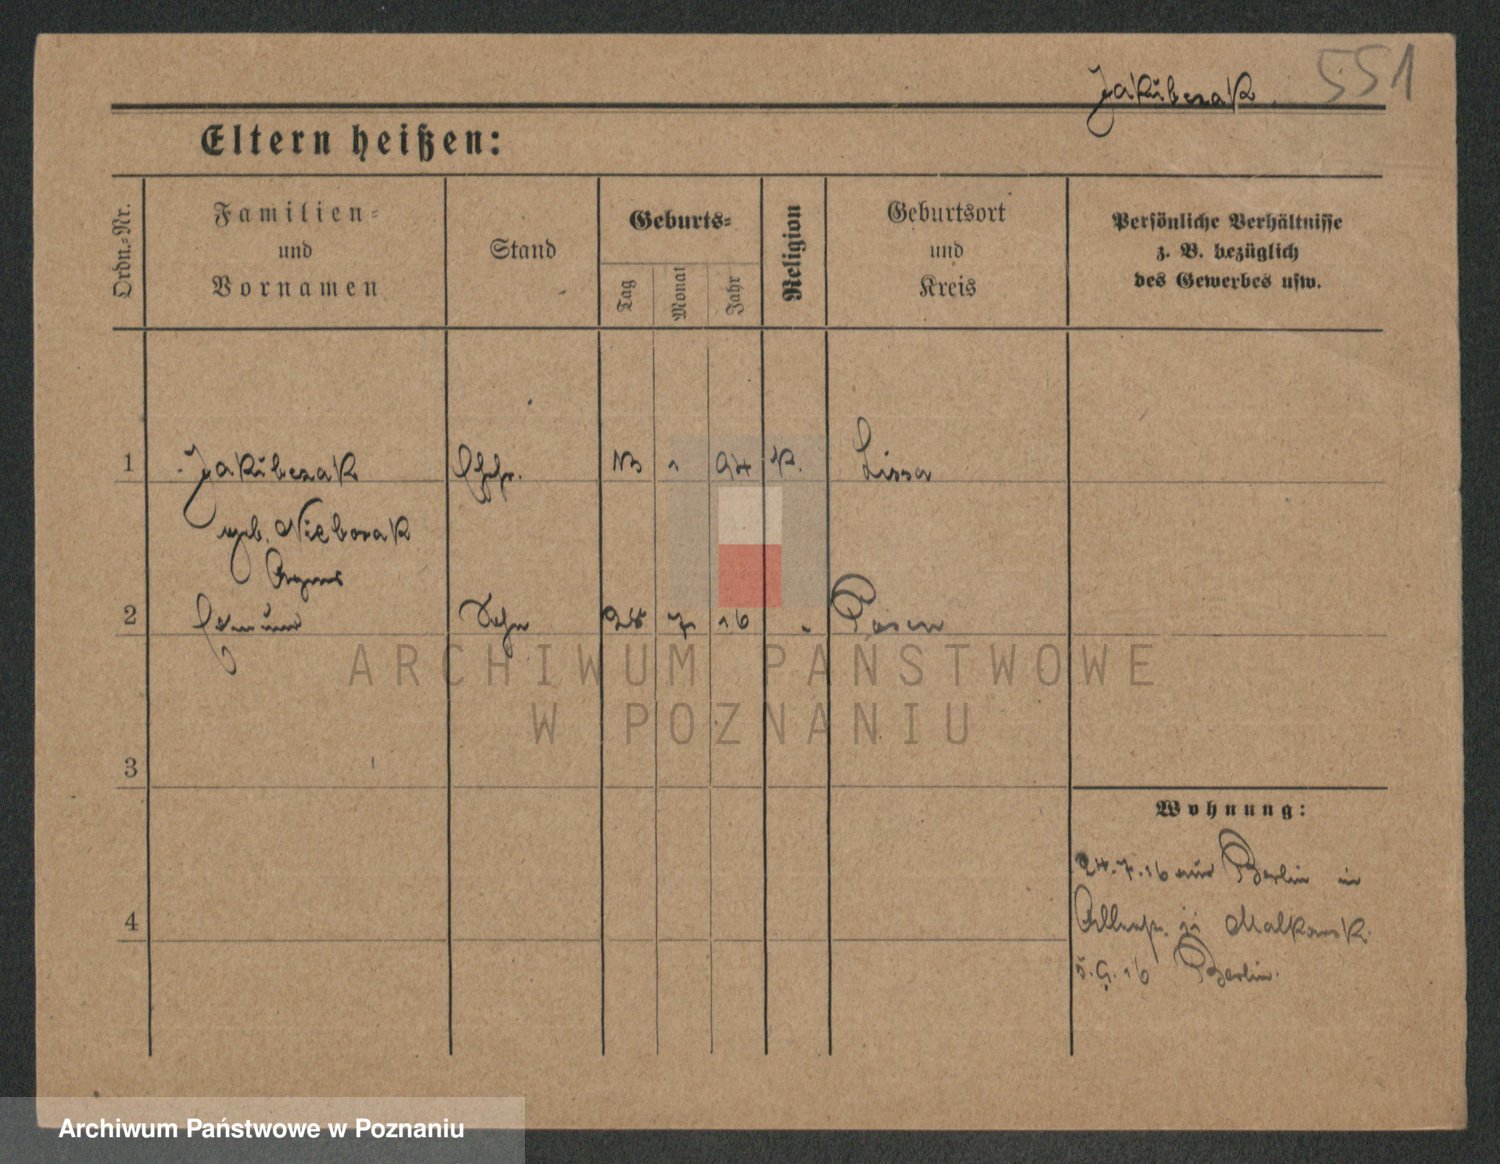 551
Jakubczak.
Eltern heißen:
Ordn.=Nr.
Familien=
und
Vornamen
Stand
Geburts=
Tag
Monat
Jahr
Religion
Geburtsort
und
Kreis
Persönliche Verhältnisse
z. B. bezüglich
des Gewerbes usw.
1 Jakubczak Ehefr. 1 94 K. Lissa
geb. Nieborak
Agnes
2 Sohn 7 16 Posen
ARCHIWUM PAŃSTWOWE
W POZNANIU
3
Wohnung:
24.7.16 aus Berlin in
4
5.9.16 Berlin.
Archiwum Państwowe w Poznaniu